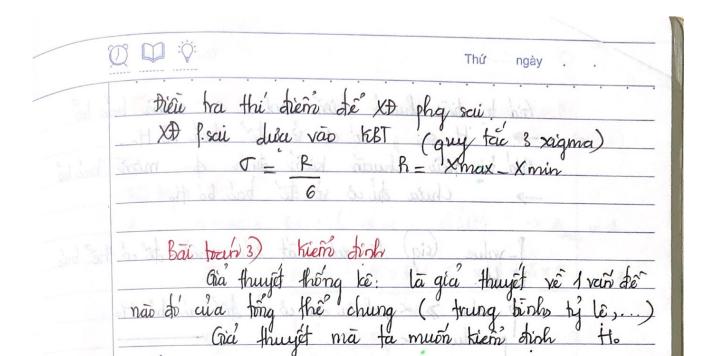 Thứ ngày . .
Điều tra thí điểm để XĐ phg sai.
XĐ P.sai dựa vào KBT (quy tắc 3 xigma)
σ = R / 6 R = Xmax - Xmin
Bài toán 3) Kiểm định
Giả thuyết thống kê: là giả thuyết về 1 vấn đề
nào đó của tổng thể chung ( trung bình, tỷ lệ,...)
Giả thuyết mà ta muốn kiểm định H₀